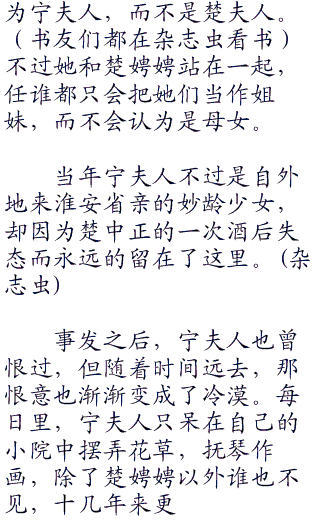 为宁夫人，而不是楚夫人。
（书友们都在杂志虫看书）
不过她和楚娉娉站在一起，
任谁都只会把她们当作姐
妹，而不会认为是母女。
当年宁夫人不过是自外
地来淮安省亲的妙龄少女，
却因为楚中正的一次酒后失
态而永远的留在了这里。(杂
志虫)
事发之后，宁夫人也曾
恨过，但随着时间远去，那
恨意也渐渐变成了冷漠。每
日里，宁夫人只呆在自己的
小院中摆弄花草，抚琴作
画，除了楚娉娉以外谁也不
见，十几年来更